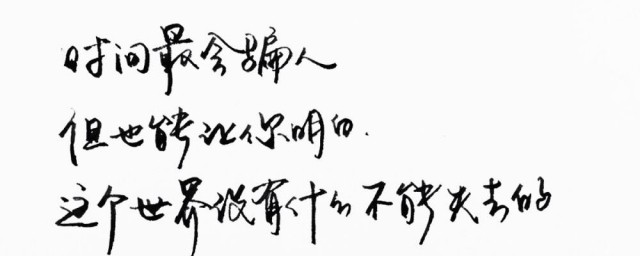 时间最会骗人
但也能让你明白.
这个世界没有什么不能失去的